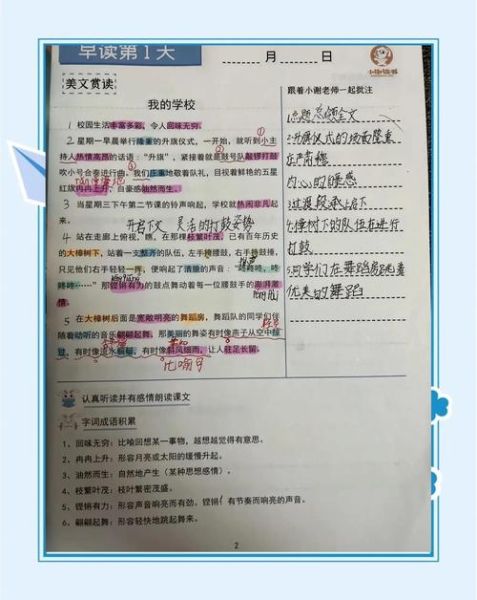 早读第1天
月 日
小谢读书
美文赏读
跟着小谢老师一起批注
我的学校
1 校园生活丰富多彩，令人回味无穷。
2 星期一早晨举行隆重的升旗仪式，一开始，就听到小主
持人热情高昂的话语："升旗"，紧接着就是鼓号队敲锣打鼓
吹小号合奏进行曲。我们庄重地敬着队礼，目视着鲜艳的五星
红旗冉冉上升，自豪感油然而生。
3 当星期三下午第二节课的铃声响起，学校就热闹非凡起
来。
开启下文 灵活的打鼓姿势
4 站在走廊上俯视，瞧，在那棵枝繁叶茂，已有百年历史
的大樟树下，站着一支整齐的队伍，左手挎腰鼓，右手持鼓捶，
只见他们右手轻轻一挥，便响起了清脆的声音："咚咚咚，咚
咚咚……"那铿锵有力的鼓点舞动着每一位腰鼓手的澎湃激
情。
5 在大樟树后面是宽敞明亮的舞蹈房，舞蹈队的同学们伴
随着动听的音乐翩翩起舞。那美丽的舞姿有时像燕子从空中掠
过，有时像蜻蜓，有时像斜风细雨，让人驻足长留。
比喻句
1.点题 总领全文
2.升旗仪式的场面隆重
庄严肃穆
内心的情感
3.过渡段承上启下
4.樟树下的队伍在进行
打鼓
优美的舞蹈
认真听读并有感情朗读课文
字词成语积累
1、回味无穷：比喻回想某一事物，越想越觉得有意思。
2、冉冉上升：形容月亮或太阳的缓慢升起。
3、油然而生：自然地产生（某种思想感情）。
4、枝繁叶茂：枝叶繁密茂盛。
5、铿锵有力：形容声音响亮而有劲。铿锵：有节奏而响亮的声音。
6、翩翩起舞：形容轻快地跳起舞来。
2